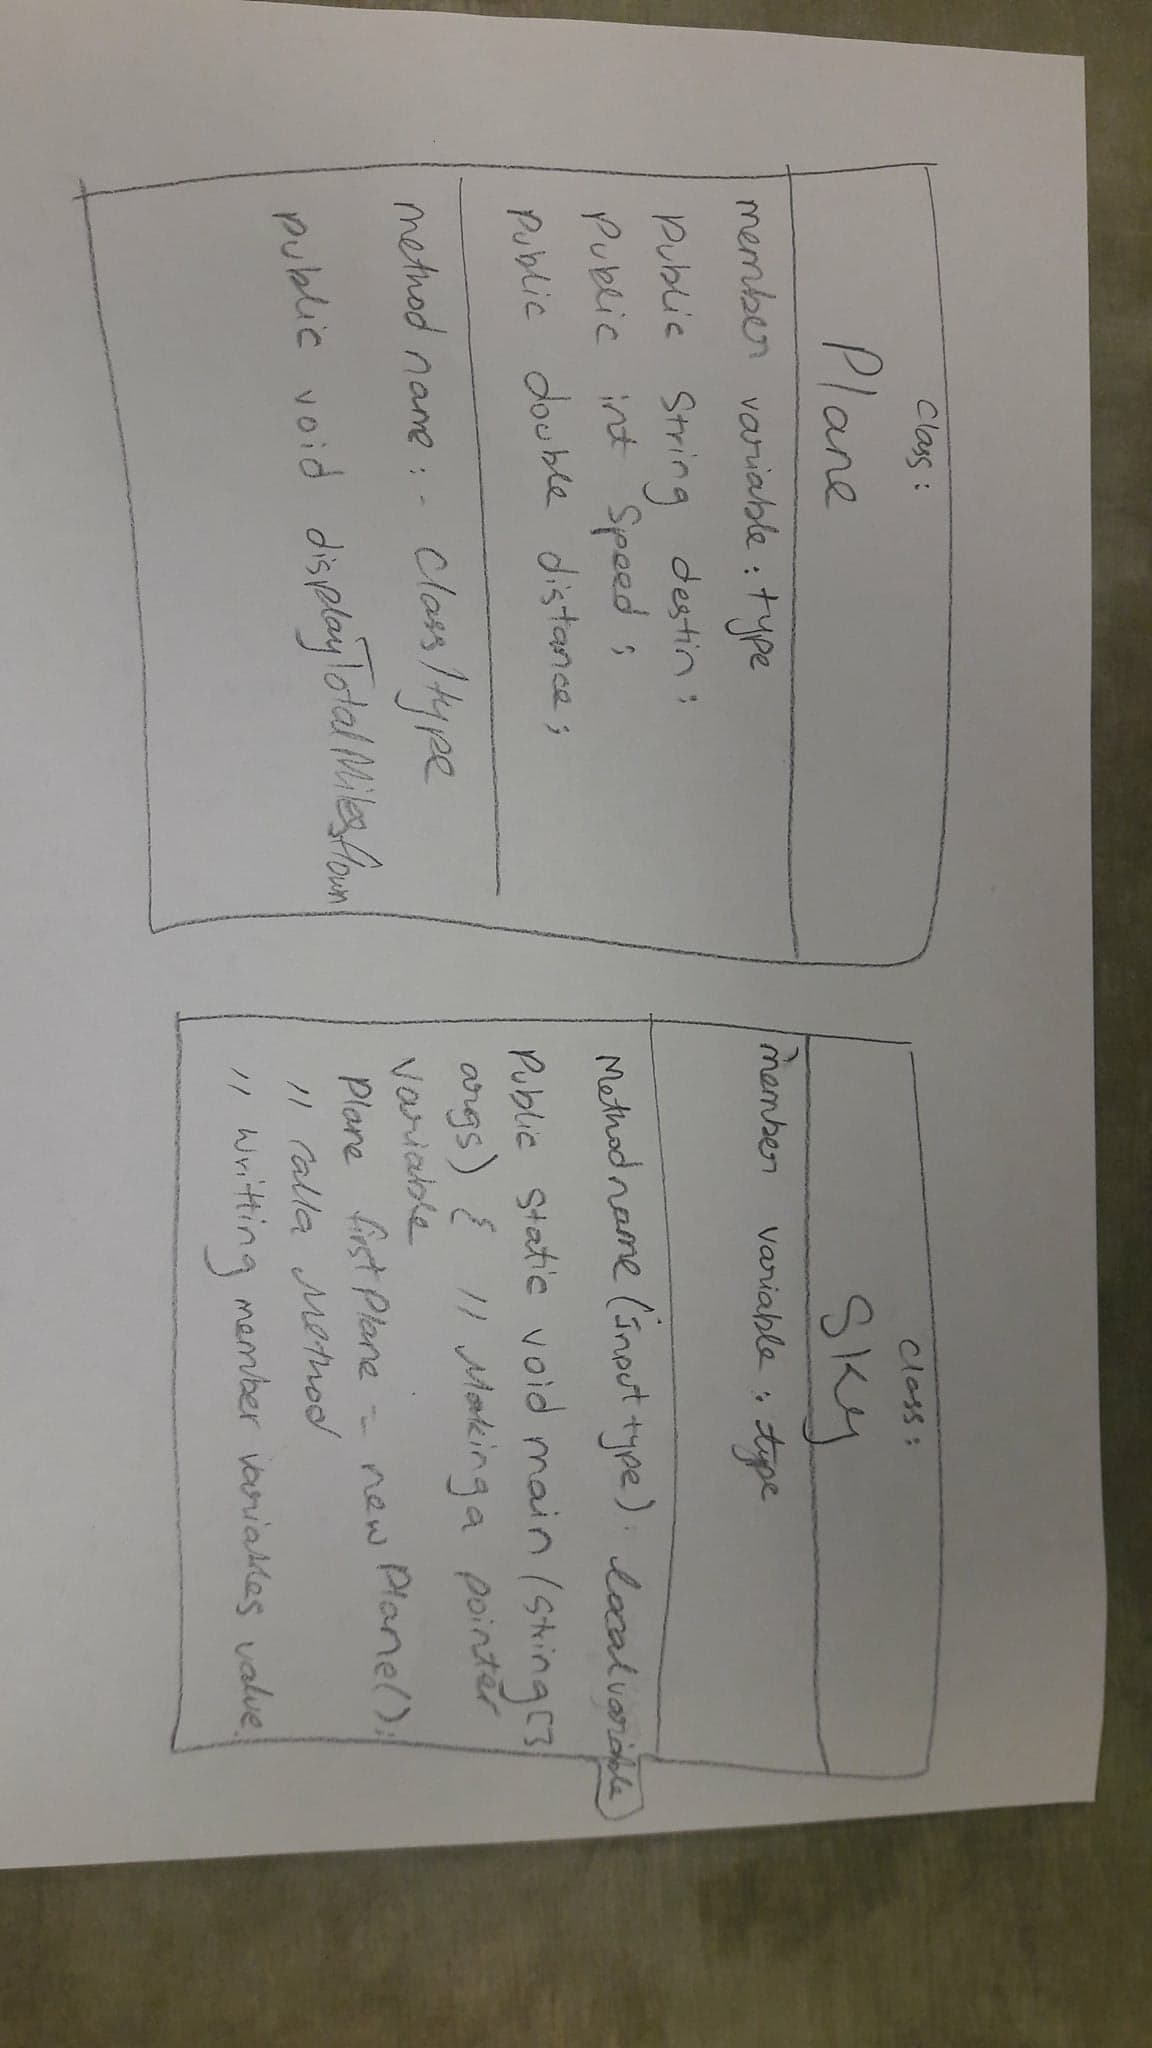 class:
Plane
member variable : type
public String destin ;
public int speed ;
public double distance ;
method name : - class/type
public void displayTotalMilesflown
class:
Sky
member variable : type
Methodname (input type) : local variable)
Public static void main (string []
args) { // Making a pointer
variable
Plane firstPlane = new Plane();
// Calla Method
// writting member variables value.